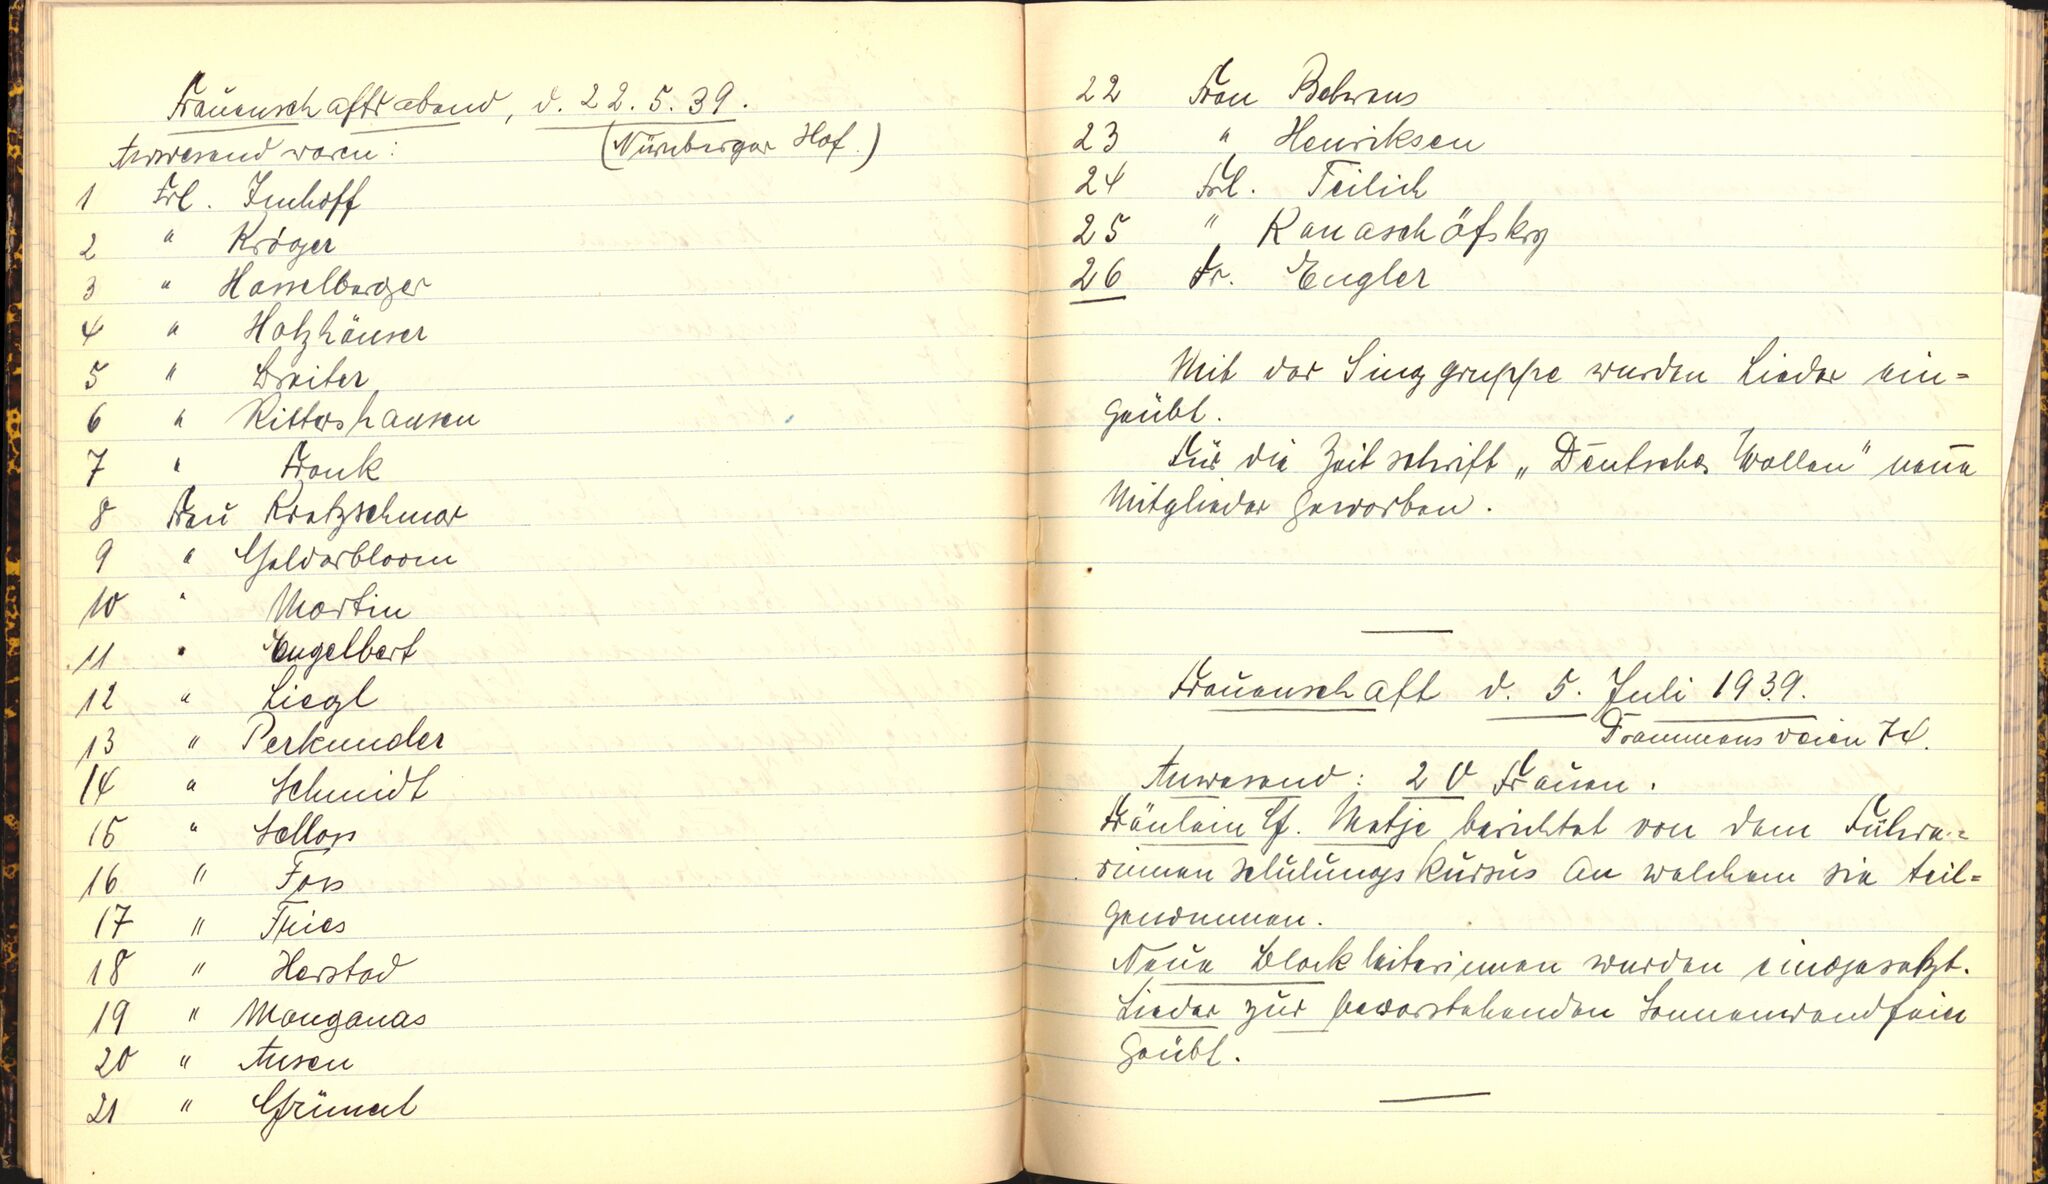 Frauenschaftsabend, d. 22.5.39.
(Nürnberger Hof.)
Anwesend waren:
1 Frl. Imhoff
2 " Kröger
3 " Hasselberger
4 " Holzhäuser
5 " Breiter
6 " Rittershausen
7 " Frank
8 Frau Kretzschmar
9 " Galderbloom
10 " Martin
11 " Engelbert
12 " Liegl
13 " Perkunder
14 " Schmidt
15 "
16 " Foss
17 " Thies
18 " Herstad
19 " Manganas
20 " Ansen
21 "
22 Frau Behrens
23 " Henriksen
24 Frl. Teilich
25 " Kanaschöfsky
26 Fr. Engler
Mit der Singgruppe wurden Lieder ein=
geübt.
Für die Zeitschrift „Deutsches Wollen" neue
Mitglieder geworben.
Frauenschaft d. 5. Juli 1939.
Drammensveien 74.
Anwesend: 20 Frauen.
Fräulein G. Matje berichtet von dem Führe=
rinnenschulungskursus an welchem sie teil=
genommen.
Neue Blockleiterinnen wurden eingesetzt.
Lieder zur bevorstehenden Sonnenwendfeier
geübt.